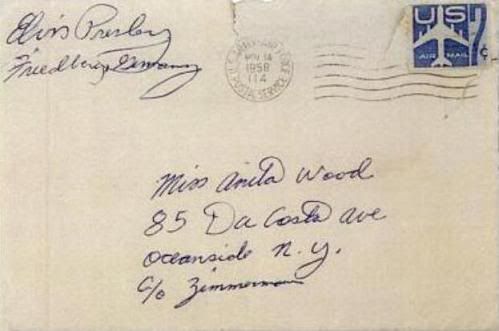 Elvis Presley
Friedberg, Germany
NOV 14
1958
POSTAL SERVICE
US
AIR MAIL
7¢
Miss Anita Wood
85 Da Costa ave
Oceanside N.Y.
c/o Zimmerman